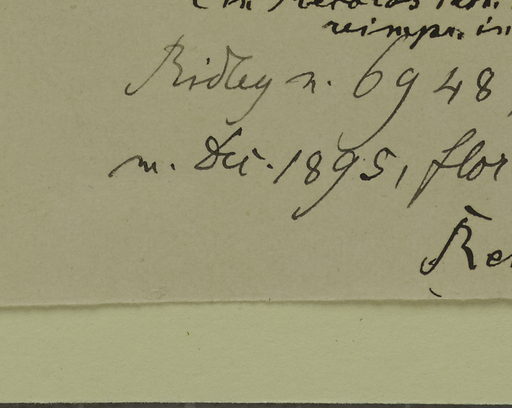 reimpr. in
Ridley n. 6948,
m. Dec. 1895, flor
Ren